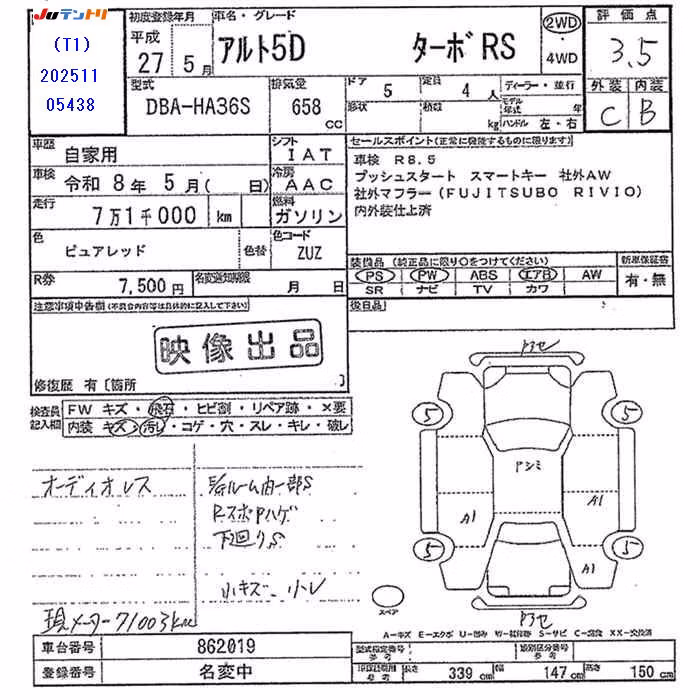 Juテントリ
(T1)
202511
05438
初度登録年月
平成
27 5月
車名・グレード
アルト5D ターボRS
2WD
4WD
評価点
3.5
外装 内装
C B
型式
DBA-HA36S
排気量
658 CC
ドア 5
形状
定員 4人
積数 kg
ディーラー・並行
モデル年式 年
ハンドル 左・右
車歴
自家用
シフト
IAT
車検
令和8年5月( 日)
冷房
AAC
走行
7万1千000 km
燃料
ガソリン
色
ピュアレッド
色替
色コード
ZUZ
R券
7,500円
名変通知期限
月 日
セールスポイント(正常に機能するものに限ります)
車検 R8.5
プッシュスタート スマートキー 社外AW
社外マフラー(FUJITSUBO RIVIO)
内外装仕上済
装備品(純正品に限り○をつけてください)
新車保証書
PS PW ABS エアB AW
SR ナビ TV カワ
有・無
後日品
注意事項申告欄(不具合内容等は具体的に記入して下さい)
映像出品
修復歴 有〔箇所 〕
検査員記入欄
FW キズ・飛石・ヒビ割・リペア跡・×要
内装 キズ・汚れ・コゲ・穴・スレ・キレ・破レ
オーディオレス
R.スポPハゲ
下廻りS
小キズ 小レ
現メーター71003km
アセ
5
5
アシミ
A1
A1
5
5
A1
アセ
スペア
A-キズ E-エクボ U-凹み W-板修跡 S-サビ C-腐食 XX-交換済
車台番号
862019
登録番号
名変中
型式指定番号
参考
類別区分番号
参考
車検証費用
参考
長さ 339 cm
幅 147 cm
高さ 150 cm